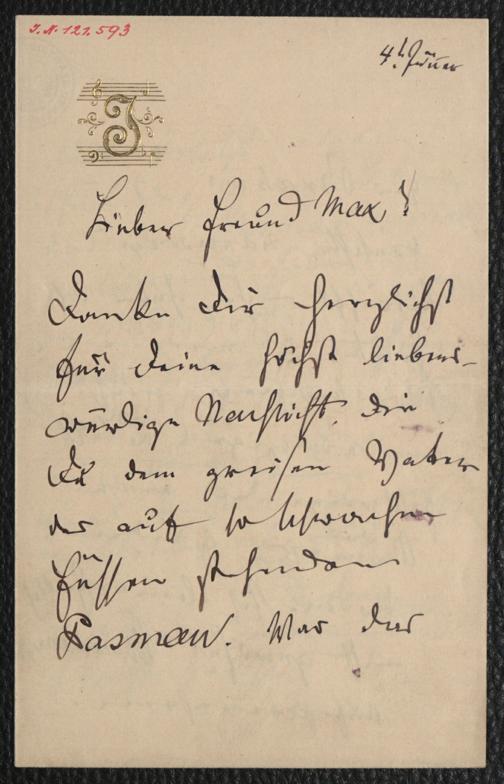 J. N. 121.593
4t Jänner
J
Lieber Freund Max!
Danke Dir herzlichst
für Deine höchst liebens-
würdige Nachsicht, die
Du dem greisen Vater
der auf so schwachen
Füssen stehenden
Pasman. War das